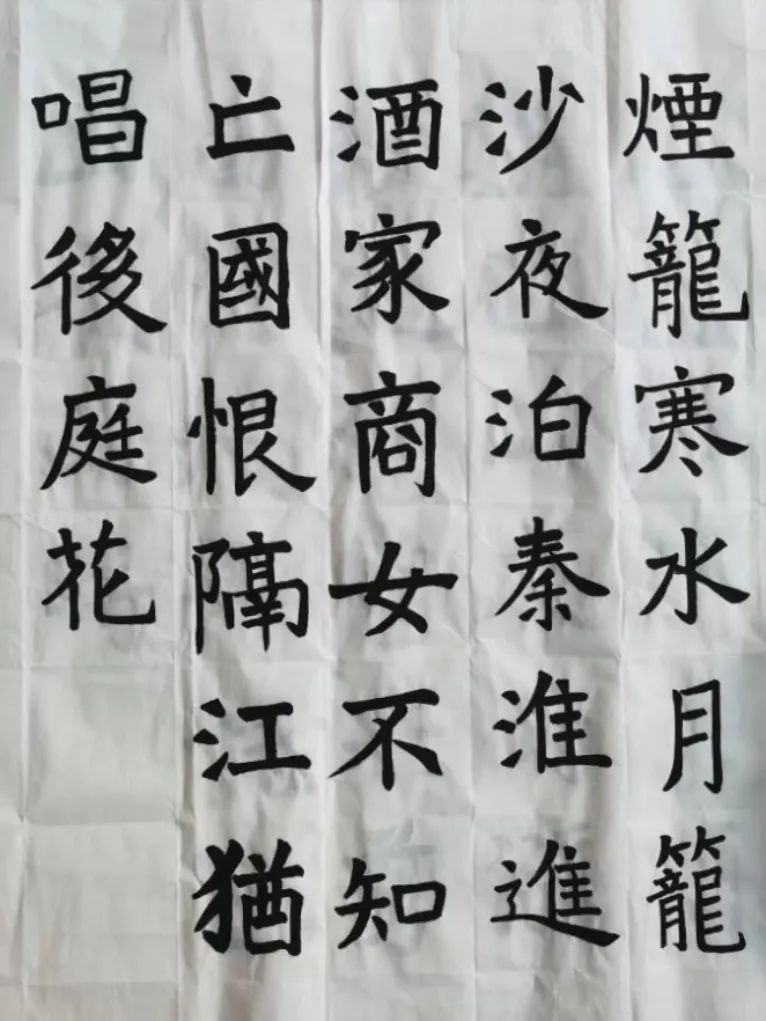 煙籠寒水月籠
沙夜泊秦淮進
酒家商女不知
亡國恨隔江猶
唱後庭花